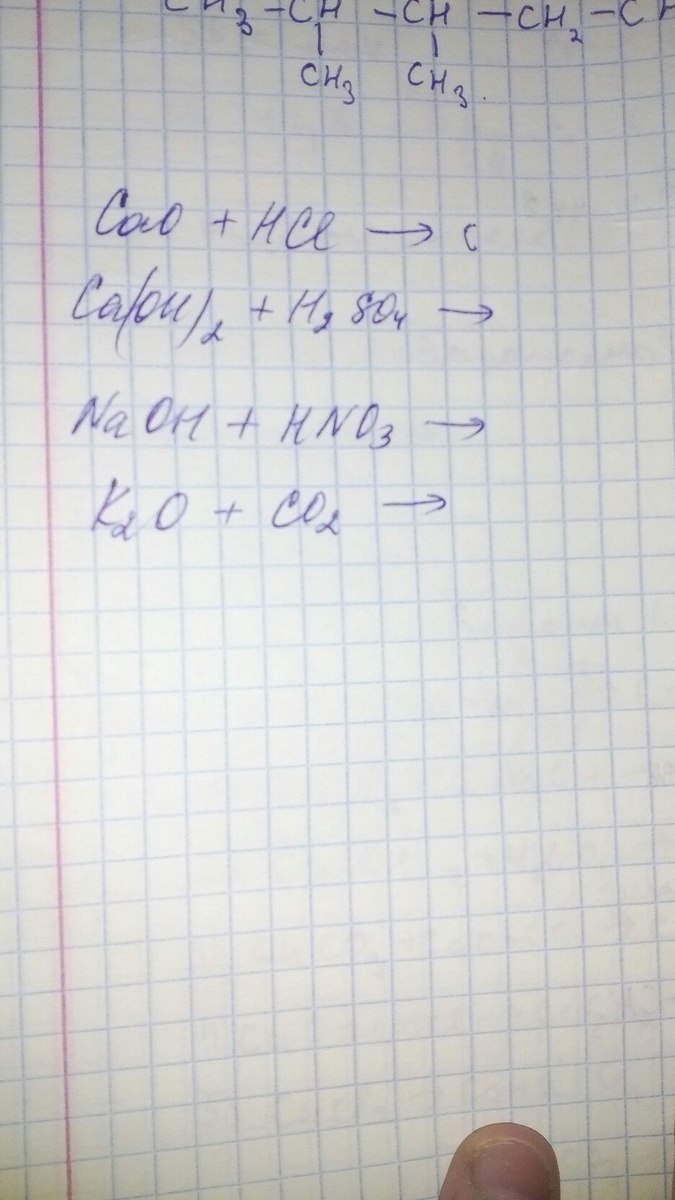 CH₃ – CH – CH – CH₂ – CH
CH₃ CH₃.
CaO + HCl → C
Ca(OH)₂ + H₂SO₄ →
NaOH + HNO₃ →
K₂O + CO₂ →